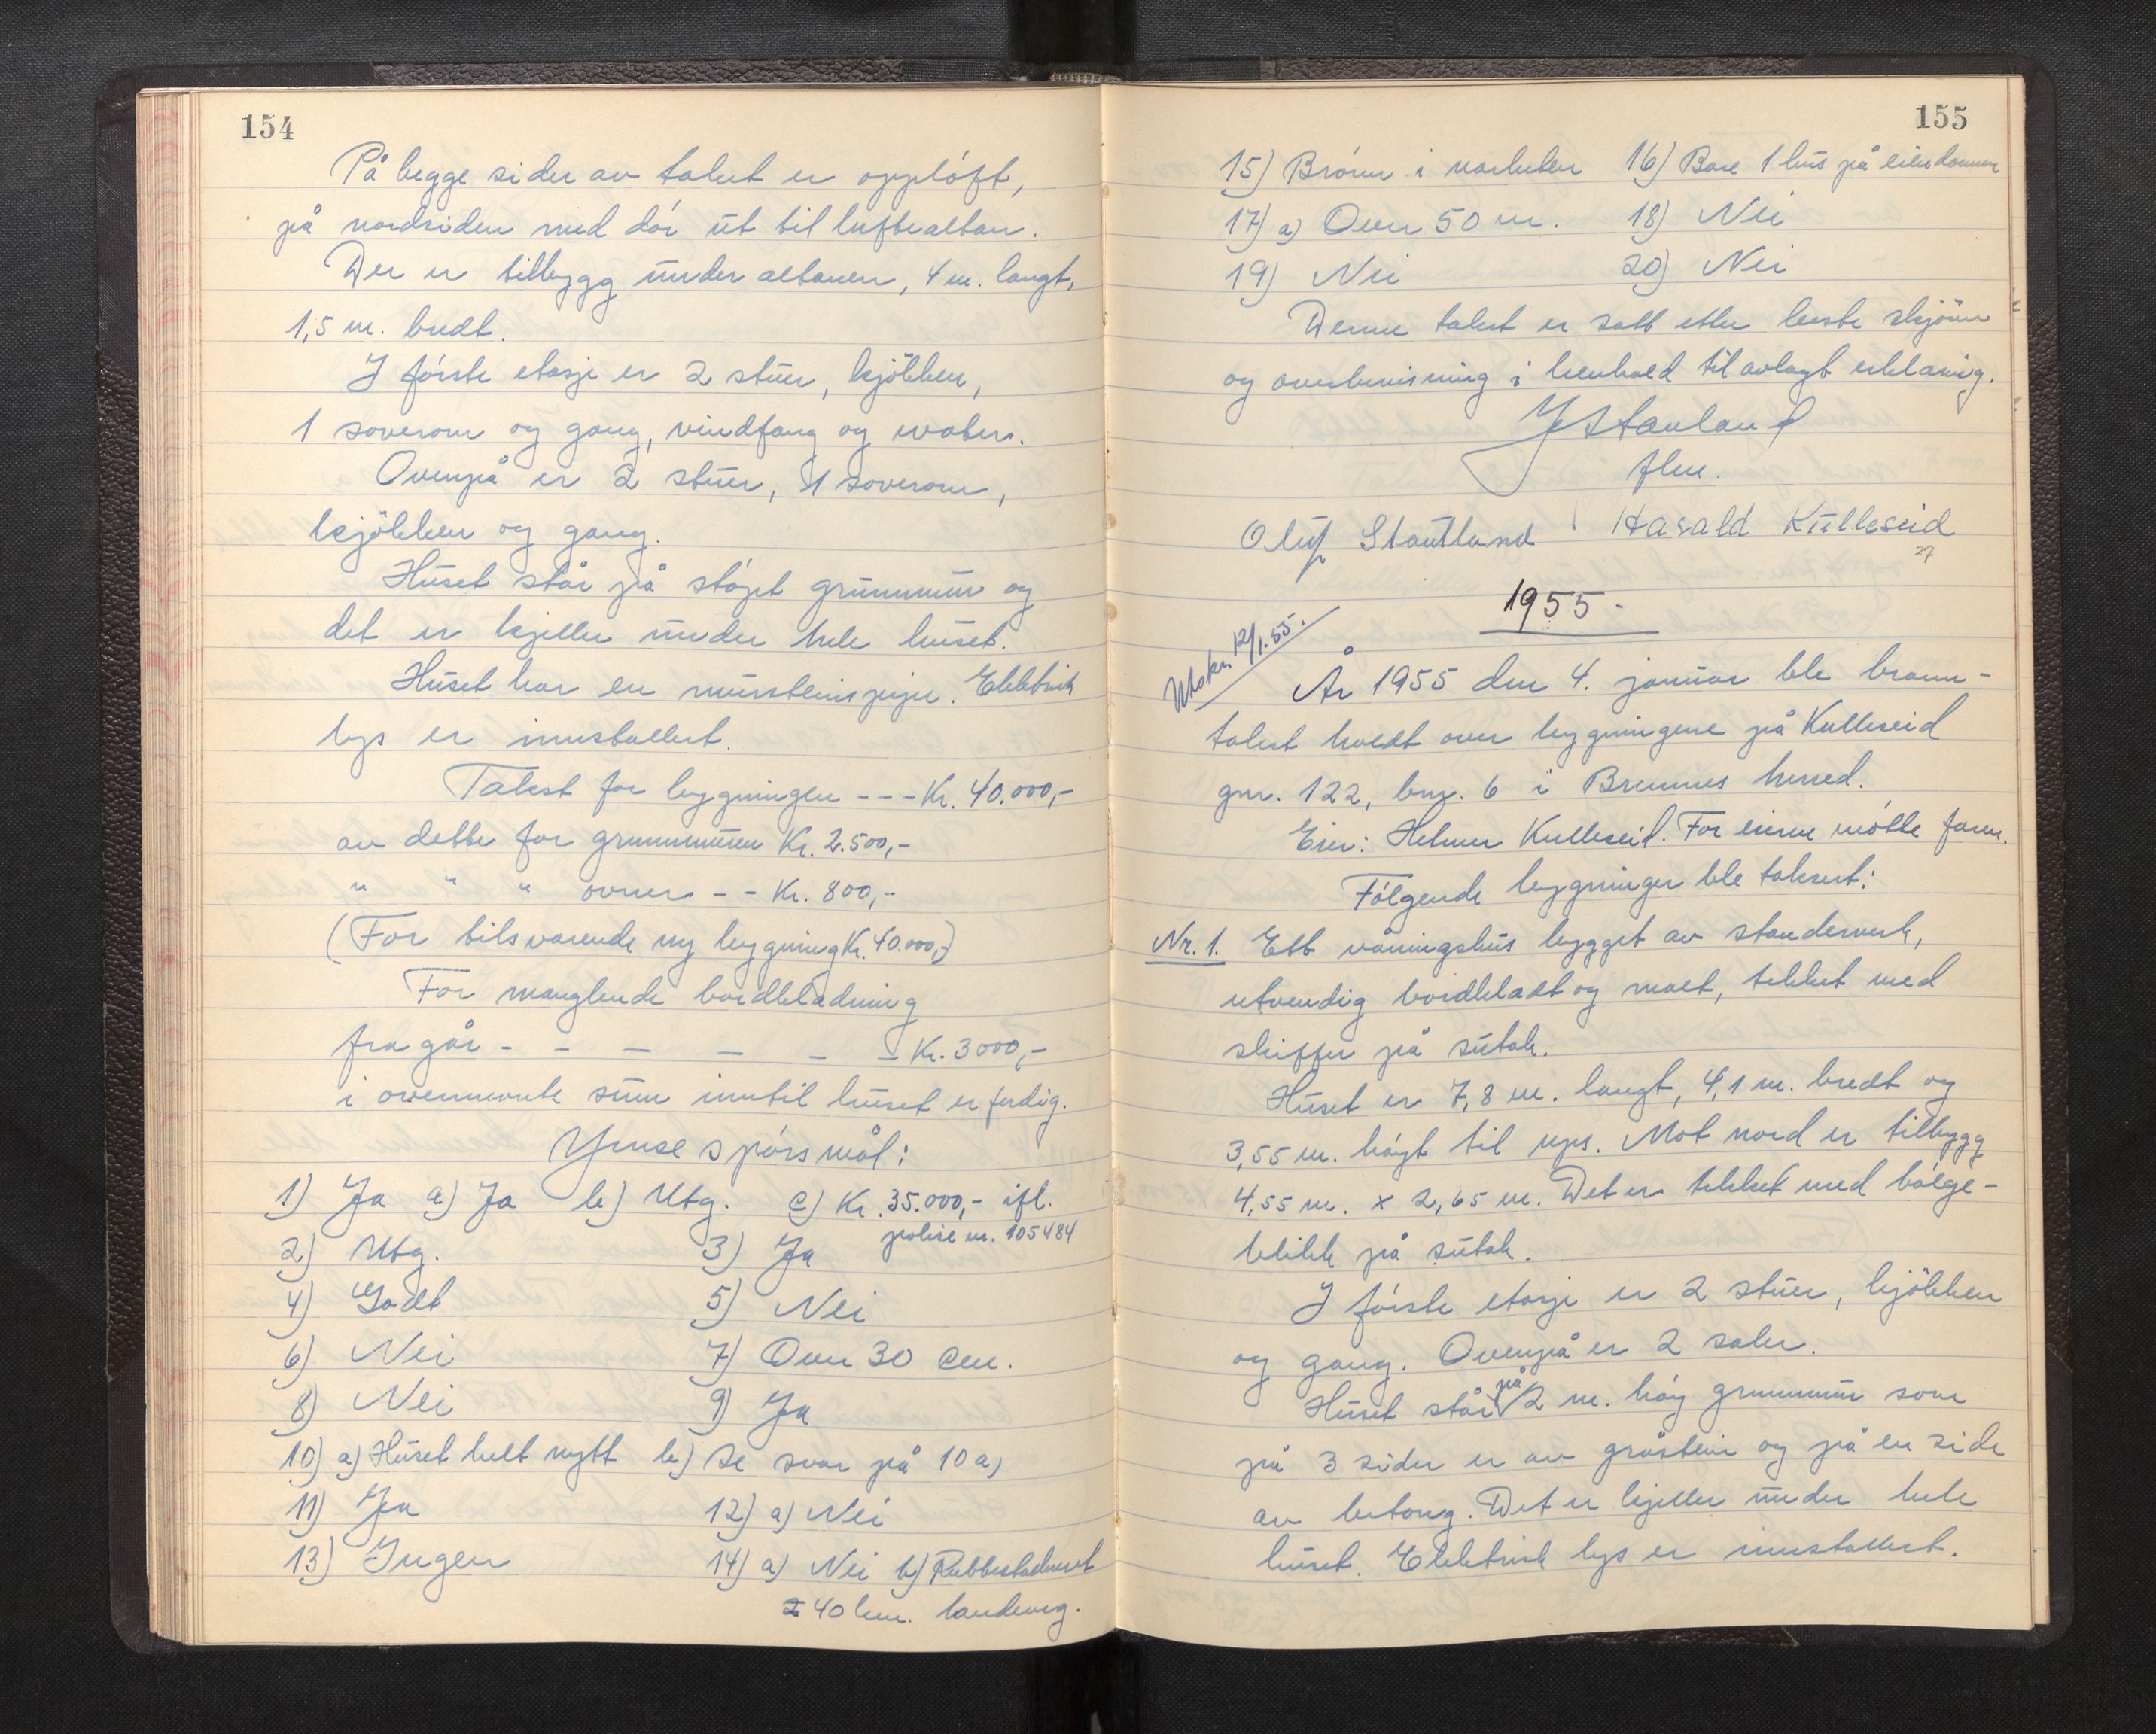 154
På begge sider av taket er oppløft,
på nordsiden med dør ut til luftealtan.
Der er tilbygg under altanen, 4 m. langt,
1,5 m. bredt.
I første etasje er 2 stuer, kjökken,
1 soverom og gang, vindfang og
Ovenpå er 2 stuer, 1 soverom,
kjökken og gang.
Huset står på støpt grunnmur og
det er kjeller under hele huset.
Huset har en mursteinspipe. Elektrisk
lys er innstallert.
Takst for bygningen --- Kr. 40.000,-
av dette for grunnmuren Kr. 2.500,-
" " " ovner -- Kr. 800,-
(For tilsvarende ny bygning Kr. 40.000,-)
For manglende bordkledning
fragår - - - - - - Kr. 3000,-
i ovennevnte sum inntil huset er ferdig.
Ymse spørsmål:
1) Ja a) Ja b) Utg. c) Kr. 35.000,- ifl.
polise nr. 105484
2) Utg. 3) Ja
4) Godt 5) Nei
6) Nei 7) Over 30 cm.
8) Nei 9) Ja
10) a) Huset helt nytt b) Se svar på 10 a)
11) Ja 12) a) Nei
13) Ingen 14) a) Nei b) Rubbestadneset
40 km. landeveg.
155
15) Brønn i nærheten 16) Bare 1 hus på eiendommen
17) a) Over 50 m. 18) Nei
19) Nei 20) Nei
Denne takst er satt etter beste skjönn
og overbevisning i henhold til avlagt erklæring.
J Stauland
flm.
Oluf Stautland Harald Kulleseid
27
1955 -
Utskr. 12/1.55.
År 1955 den 4. januar ble brann-
takst holdt over bygningene på Kulleseid
gnr. 122, bnr. 6 i Bremnes herred.
Eier: Helmer Kulleseid. For eieren møtte faren.
Følgende bygninger ble taksert:
Nr. 1. Ett våningshus bygget av standerverk,
utvendig bordkledt og malt, tekket med
skiffer på sutak.
Huset er 7,8 m. langt, 4,1 m. bredt og
3,55 m. høyt til ups. Mot nord er tilbygg
4,55 m. x 2,65 m. Det er tekket med bølge-
blikk på sutak.
I første etasje er 2 stuer, kjökken
og gang. Ovenpå er 2 saler.
Huset står på 2 m. høy grunnmur som
på 3 sider er av gråstein og på en side
av betong. Det er kjeller under hele
huset. Elektrisk lys er innstallert.